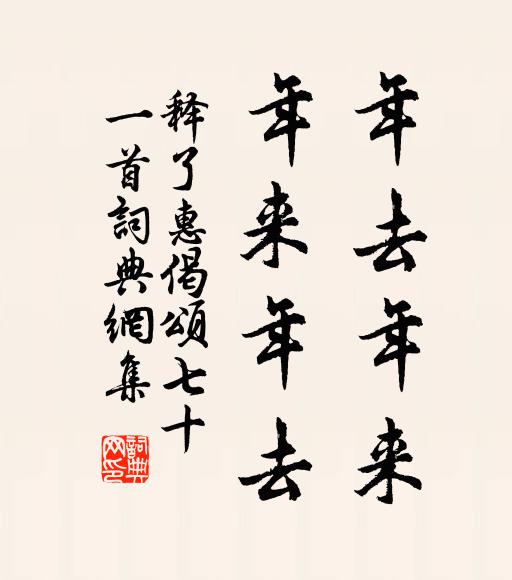 年去年来
年来年去
释了惠偈頌七十
一首詞典網集
詞典
网印